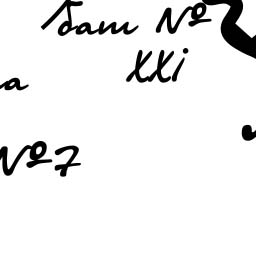 бат №
XXi
а
№7